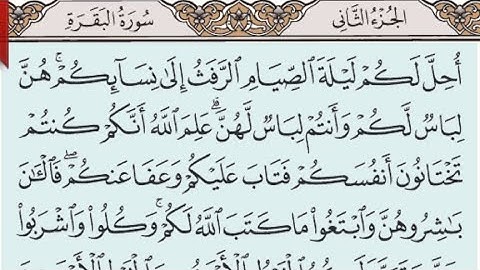 سُورَةُ البَقَرَةِ الجُزْءُ الثَّانِي
أُحِلَّ لَكُمْ لَيْلَةَ ٱلصِّيَامِ ٱلرَّفَثُ إِلَىٰ نِسَآئِكُمْۚ هُنَّ
لِبَاسٌ لَّكُمْ وَأَنتُمْ لِبَاسٌ لَّهُنَّۗ عَلِمَ ٱللَّهُ أَنَّكُمْ كُنتُمْ
تَخْتَانُونَ أَنفُسَكُمْ فَتَابَ عَلَيْكُمْ وَعَفَا عَنكُمْۖ فَٱلْـَٰٔنَ
بَـٰشِرُوهُنَّ وَٱبْتَغُوا۟ مَا كَتَبَ ٱللَّهُ لَكُمْۚ وَكُلُوا۟ وَٱشْرَبُوا۟